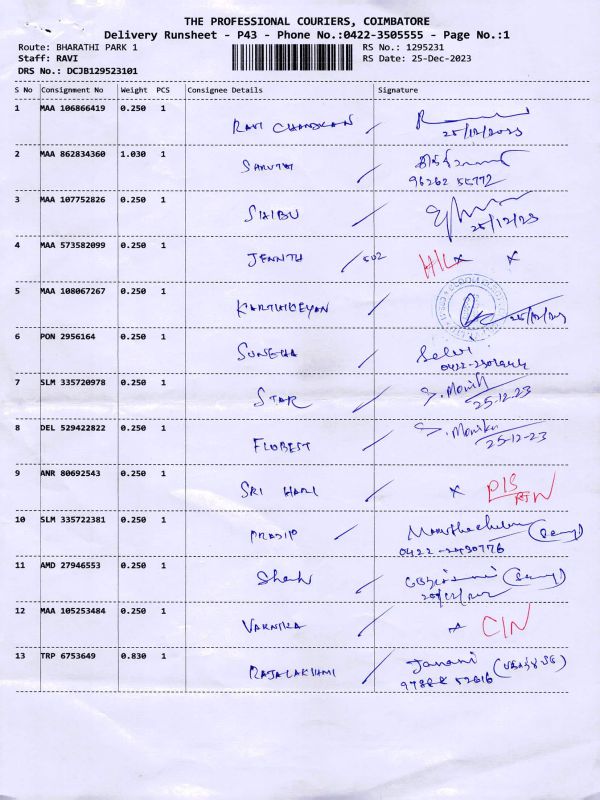 THE PROFESSIONAL COURIERS, COIMBATORE
Delivery Runsheet - P43 - Phone No.:0422-3505555 - Page No.:1
Route: BHARATHI PARK 1 RS No.: 1295231
Staff: RAVI RS Date: 25-Dec-2023
DRS No.: DCJB129523101
S No Consignment No Weight PCS Consignee Details Signature
1 MAA 106866419 0.250 1 RAVI CHANDRAN
25/12/2023
2 MAA 862834360 1.030 1 SARUTHI
96262 55772
3 MAA 107752826 0.250 1 SHIBU
25/12/23
4 MAA 573582099 0.250 1 JENNTH / 502 x x
5 MAA 108067267 0.250 1 KARTHIKEYAN
25/12/23
6 PON 2956164 0.250 1 SUNEHA Selvi
7 SLM 335720978 0.250 1 STAR S. Monika
25-12-23
8 DEL 529422822 0.250 1 FLOBEST S. Monika
25-12-23
9 ANR 80692543 0.250 1 SRI HARI x
10 SLM 335722381 0.250 1 PRADIP
0422-2430776
11 AMD 27946553 0.250 1 Shah
12 MAA 105253484 0.250 1 VARNIKA x CIN
13 TRP 6753649 0.830 1 RAJALAKSHMI Janani